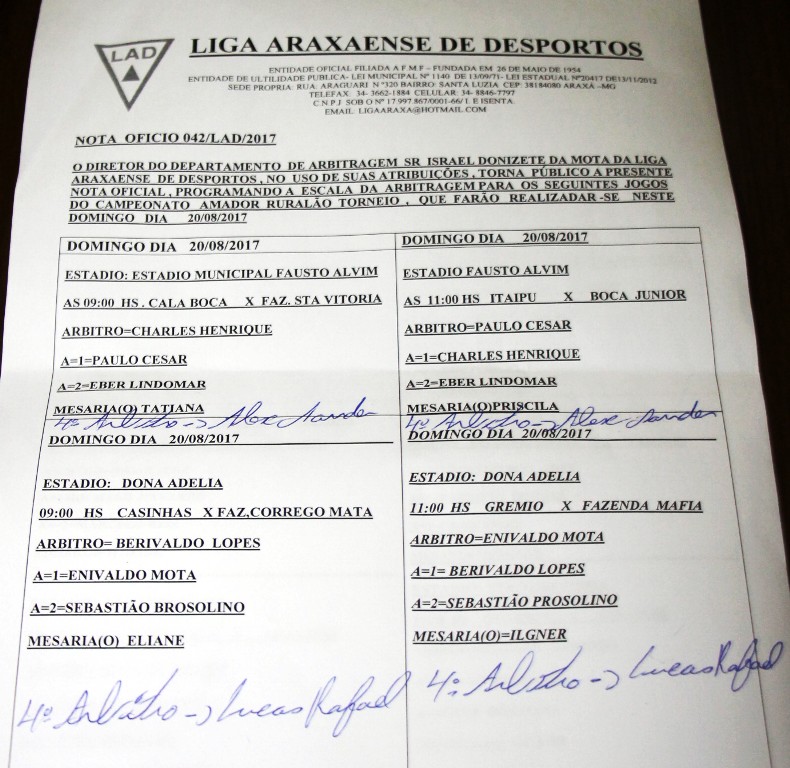 LAD
LIGA ARAXAENSE DE DESPORTOS
ENTIDADE OFICIAL FILIADA A F M F – FUNDADA EM 26 DE MAIO DE 1954
ENTIDADE DE ULTILIDADE PUBLICA- LEI MUNICIPAL Nº 1140 DE 13/09/71- LEI ESTADUAL Nº20417 DE13/11/2012
SEDE PROPRIA: RUA: ARAGUARI N º320 BAIRRO: SANTA LUZIA CEP: 38184080 ARAXÁ –MG
TELEFAX 34- 3662-1884 CELULAR: 34- 8846-7797
C.N.P.J SOB O Nº 17.997.867/0001-66/I. E ISENTA.
EMAIL. LIGAARAXA@HOTMAIL.COM
NOTA OFICIO 042/LAD/2017
O DIRETOR DO DEPARTAMENTO DE ARBITRAGEM SR ISRAEL DONIZETE DA MOTA DA LIGA
ARAXAENSE DE DESPORTOS , NO USO DE SUAS ATRIBUIÇÕES , TORNA PÚBLICO A PRESENTE
NOTA OFICIAL , PROGRAMANDO A ESCALA DA ARBITRAGEM PARA OS SEGUINTES JOGOS
DO CAMPEONATO AMADOR RURALÃO TORNEIO , QUE FARÃO REALIZADAR -SE NESTE
DOMINGO DIA 20/08/2017
DOMINGO DIA 20/08/2017
ESTADIO: ESTADIO MUNICIPAL FAUSTO ALVIM
AS 09:00 HS . CALA BOCA X FAZ. STA VITORIA
ARBITRO=CHARLES HENRIQUE
A=1=PAULO CESAR
A=2=EBER LINDOMAR
MESARIA(O) TATIANA
4º Arbitro -> Alex Sander
DOMINGO DIA 20/08/2017
ESTADIO FAUSTO ALVIM
AS 11:00 HS ITAIPU X BOCA JUNIOR
ARBITRO=PAULO CESAR
A=1=CHARLES HENRIQUE
A=2=EBER LINDOMAR
MESARIA(O)PRISCILA
4º Arbitro -> Alex Sander
DOMINGO DIA 20/08/2017
ESTADIO: DONA ADELIA
09:00 HS CASINHAS X FAZ,CORREGO MATA
ARBITRO= BERIVALDO LOPES
A=1=ENIVALDO MOTA
A=2=SEBASTIÃO BROSOLINO
MESARIA(O) ELIANE
4º Arbitro -> Lucas Rafael
DOMINGO DIA 20/08/2017
ESTADIO: DONA ADELIA
11:00 HS GREMIO X FAZENDA MAFIA
ARBITRO=ENIVALDO MOTA
A=1= BERIVALDO LOPES
A=2=SEBASTIÃO PROSOLINO
MESARIA(O)=ILGNER
4º Arbitro -> Lucas Rafael